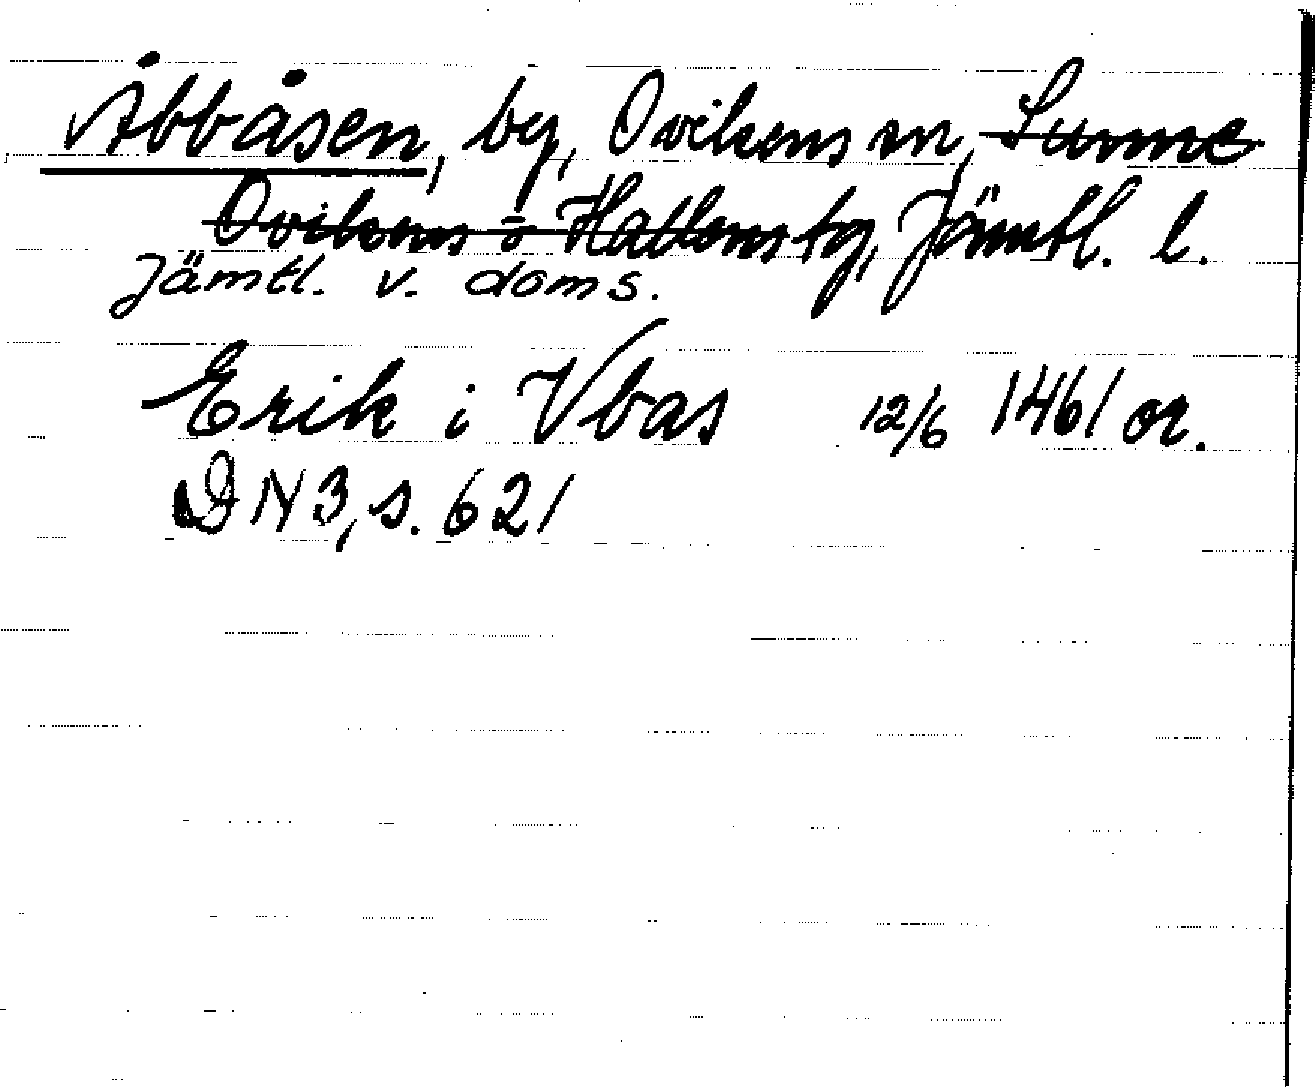 Åbbåsen, by, Ovikens sn, Sunne
Ovikens o Hallens tg, Jämtl. l.
Jämtl. v. doms.
Erik i Vbas 12/6 1461 or.
DN 3, s. 621